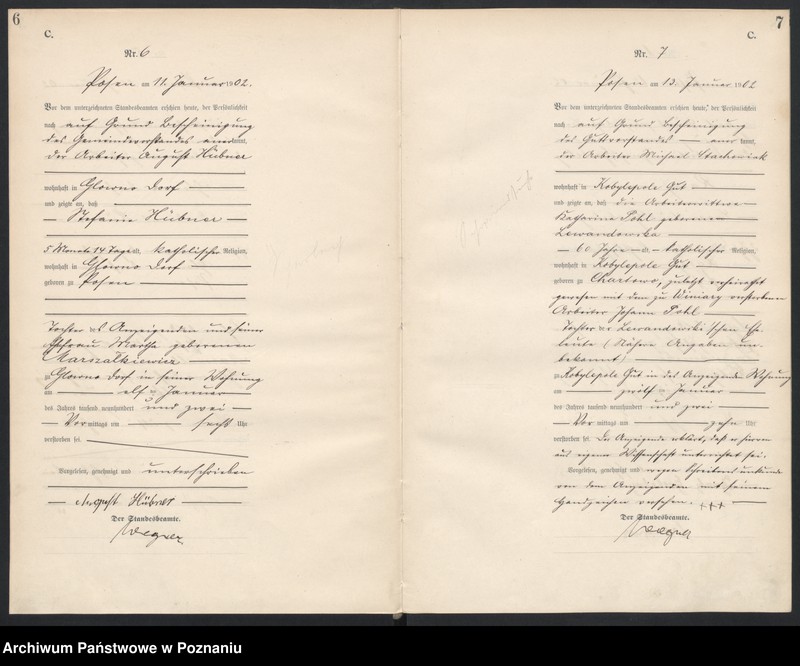 6
C.
Nr. 6
Posen am 11. Januar 1902.
Vor dem unterzeichneten Standesbeamten erschien heute, der Persönlichkeit
nach auf Grund Bescheinigung
des Gemeindevorstandes anerkannt,
der Arbeiter August Hübner
wohnhaft in Glowno Dorf
und zeigte an, daß
Stefanie Hübner
5 Monate 14 Tage alt, katholischer Religion,
wohnhaft in Glowno Dorf
geboren zu Posen
Tochter des Anzeigenden und seiner
Ehefrau Martha geborenen
Marszalkiewicz
zu Glowno Dorf in seiner Wohnung
am elf Januar
des Jahres tausend neunhundert und zwei
Vormittags um sechs Uhr
verstorben sei.
Vorgelesen, genehmigt und unterschrieben
August Hübner
Der Standesbeamte.
7
C.
Nr. 7
Posen am 13. Januar 1902
Vor dem unterzeichneten Standesbeamten erschien heute, der Persönlichkeit
nach auf Grund Bescheinigung
des Gutsvorstandes anerkannt,
der Arbeiter Michael Stachowiak
wohnhaft in Kobylepole Gut
und zeigte an, daß die Arbeiterwittwe
Katharina Pohl geborene
Lewandowska
60 Jahre alt, katholischer Religion,
wohnhaft in Kobylepole Gut
geboren zu Chartowo, zuletzt verheirathet
gewesen mit dem zu Winiary verstorbenen
Arbeiter Johann Pohl
Tochter der Lewandowski'schen Ehe-
leute (Nähere Angaben un-
bekannt)
zu Kobylepole Gut in des Anzeigenden Wohnung
am zwölf Januar
des Jahres tausend neunhundert und zwei
Vormittags um zehn Uhr
verstorben sei. Der Anzeigende erklärt, daß er hiervon
aus eigener Wissenschaft unterrichtet sei.
Vorgelesen, genehmigt und wegen Schreibensunkunde
von dem Anzeigenden mit seinem
Handzeichen versehen. +++
Der Standesbeamte.
Archiwum Państwowe w Poznaniu